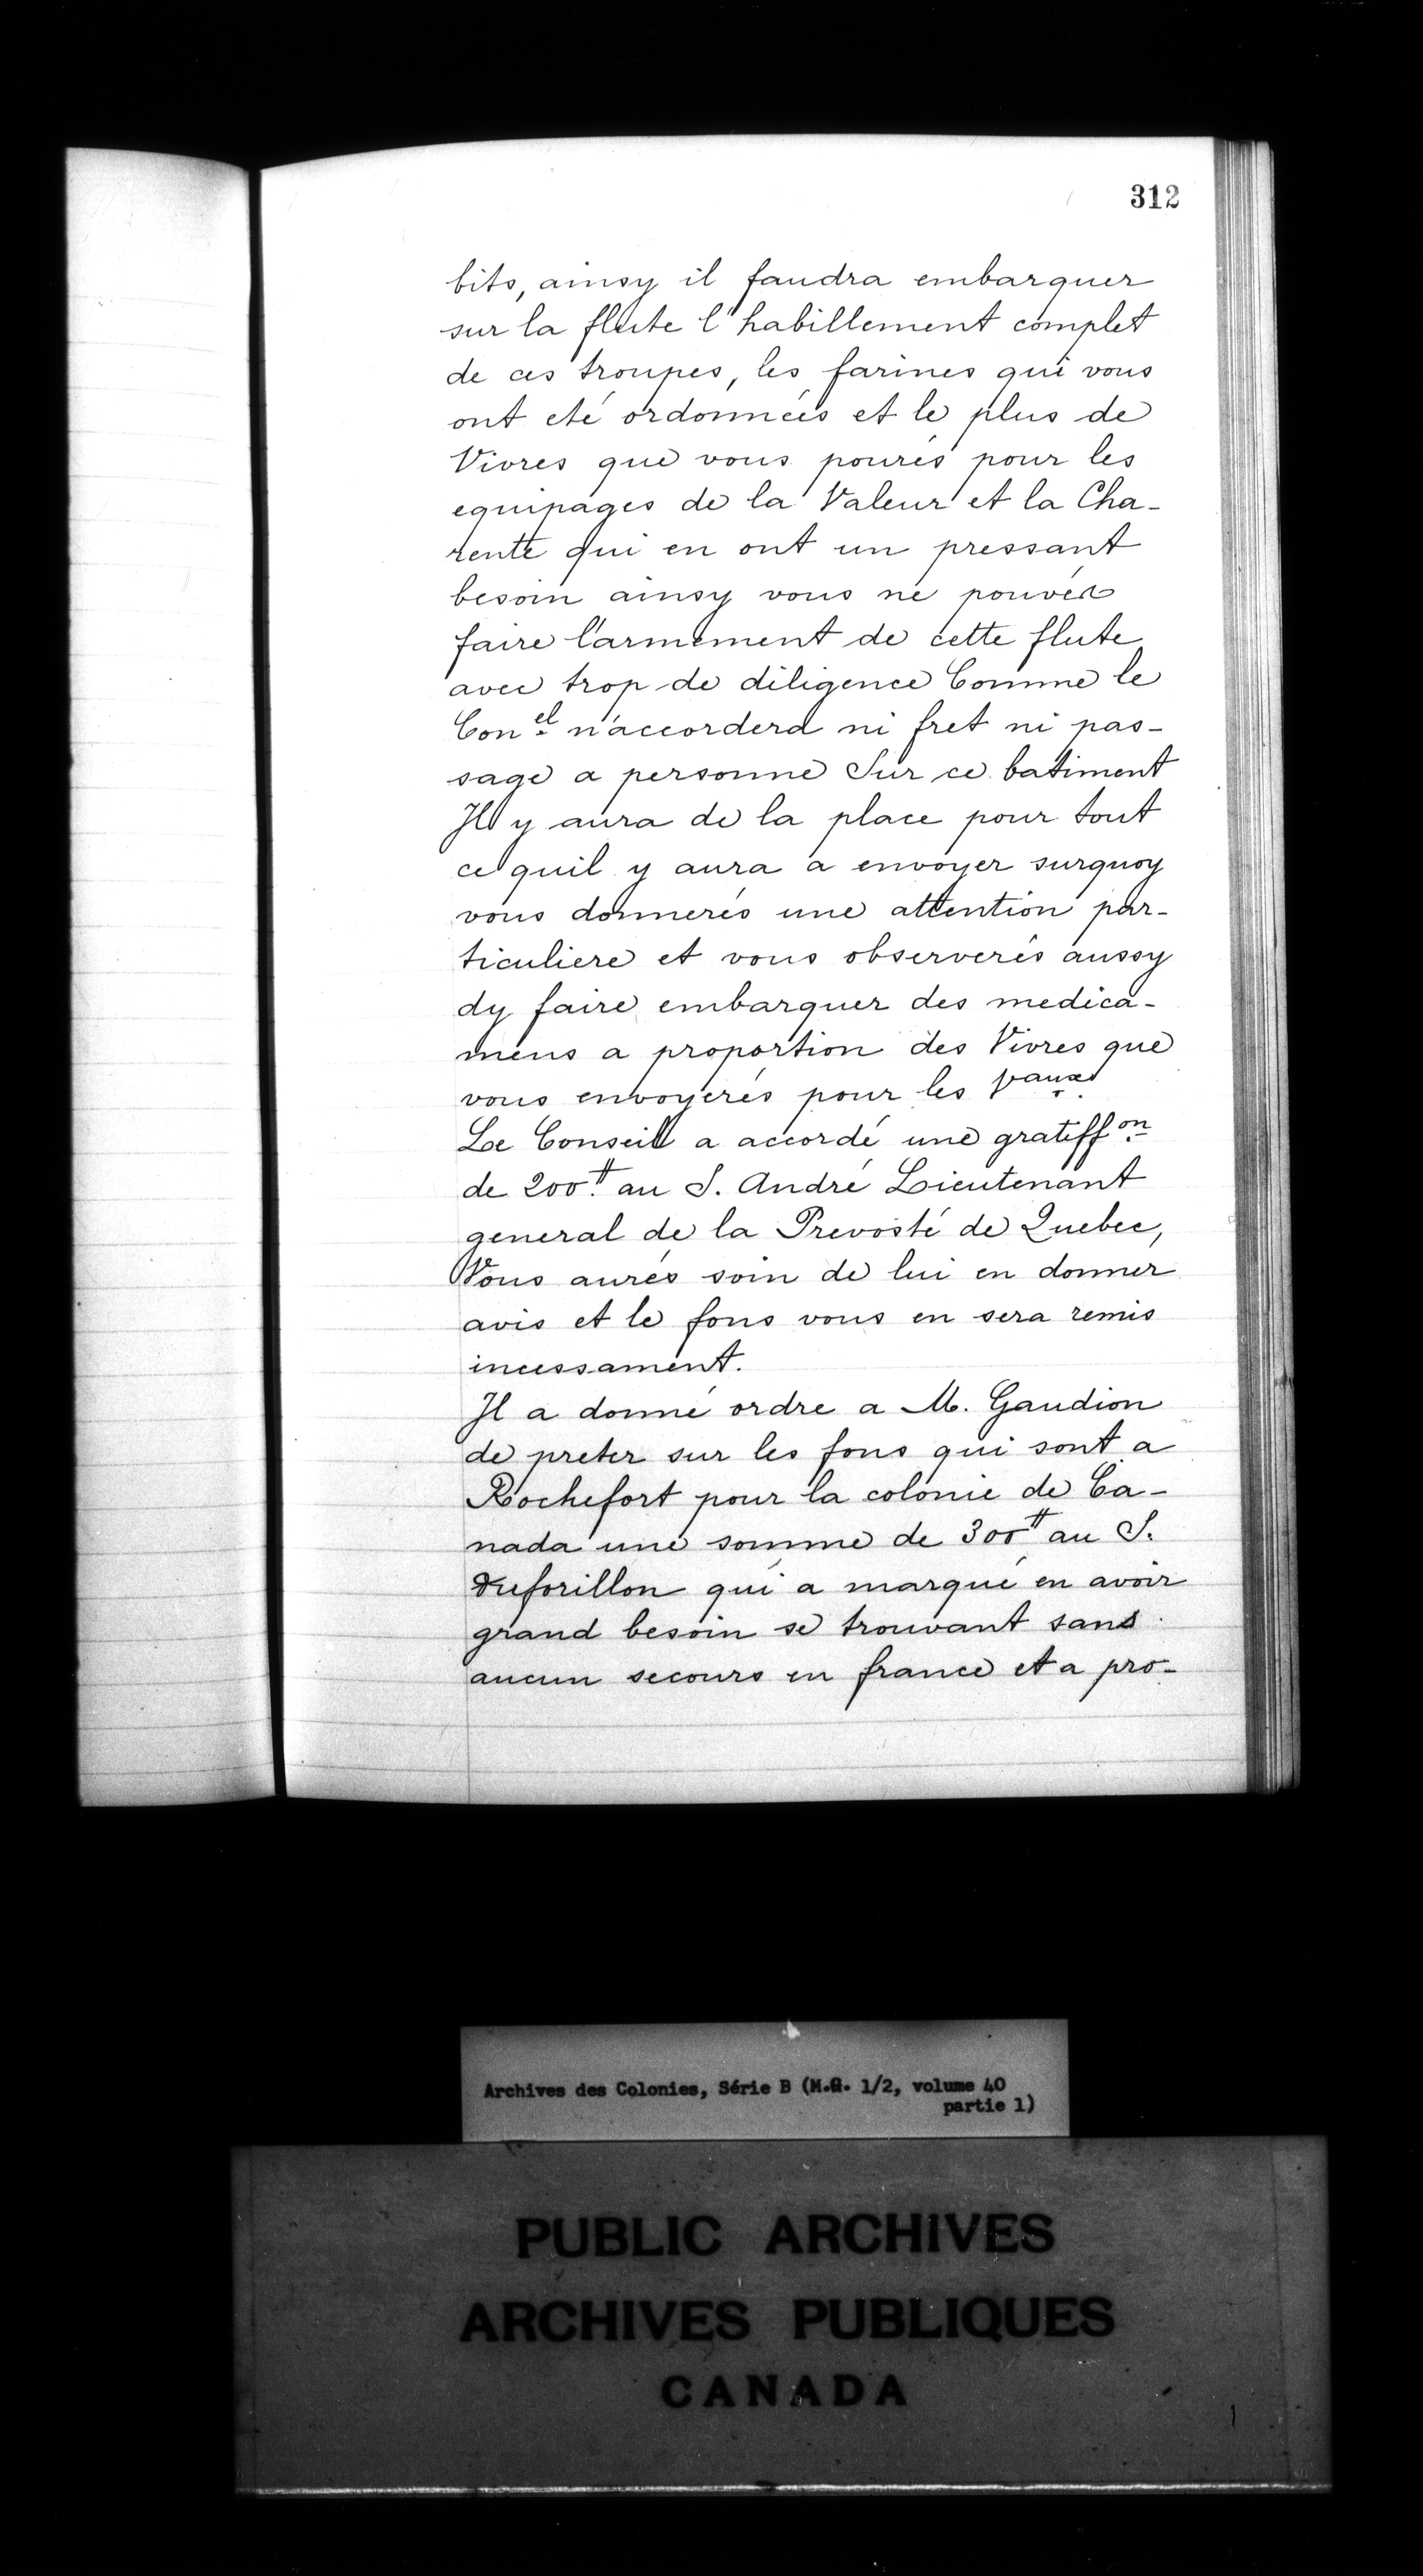 312
bits, ainsy il faudra embarquer
sur la flute l'habillement complet
de ces troupes, les farines qui vous
ont eté ordonnées et le plus de
Vivres que vous pourés pour les
equipages de la Valeur et la Cha-
rente qui en ont un pressant
besoin ainsy vous ne pouvés
faire l'armement de cette flute
avec trop de diligence Comme le
Con.el n'accordera ni fret ni pas-
sage a personne Sur ce batiment
Il y aura de la place pour tout
ce quil y aura a envoyer surquoy
vous donnerés une attention par-
ticuliere et vous observerés aussy
dy faire embarquer des medica-
mens a proportion des Vivres que
vous envoyerés pour les Vaux.
Le Conseil a accordé une gratiff.on
de 200.tt au S. André Lieutenant
general de la Prevosté de Quebec,
Vous aurés soin de lui en donner
avis et le fons vous en sera remis
incessament.
Il a donné ordre a M. Gaudion
de preter sur les fons qui sont a
Rochefort pour la colonie de Ca-
nada une somme de 300tt au S.
Duforillon qui a marqué en avoir
grand besoin se trouvant sans
aucun secours en france et a pro-
Archives des Colonies, Série B (M.G. 1/2, volume 40
partie 1)
PUBLIC ARCHIVES
ARCHIVES PUBLIQUES
CANADA